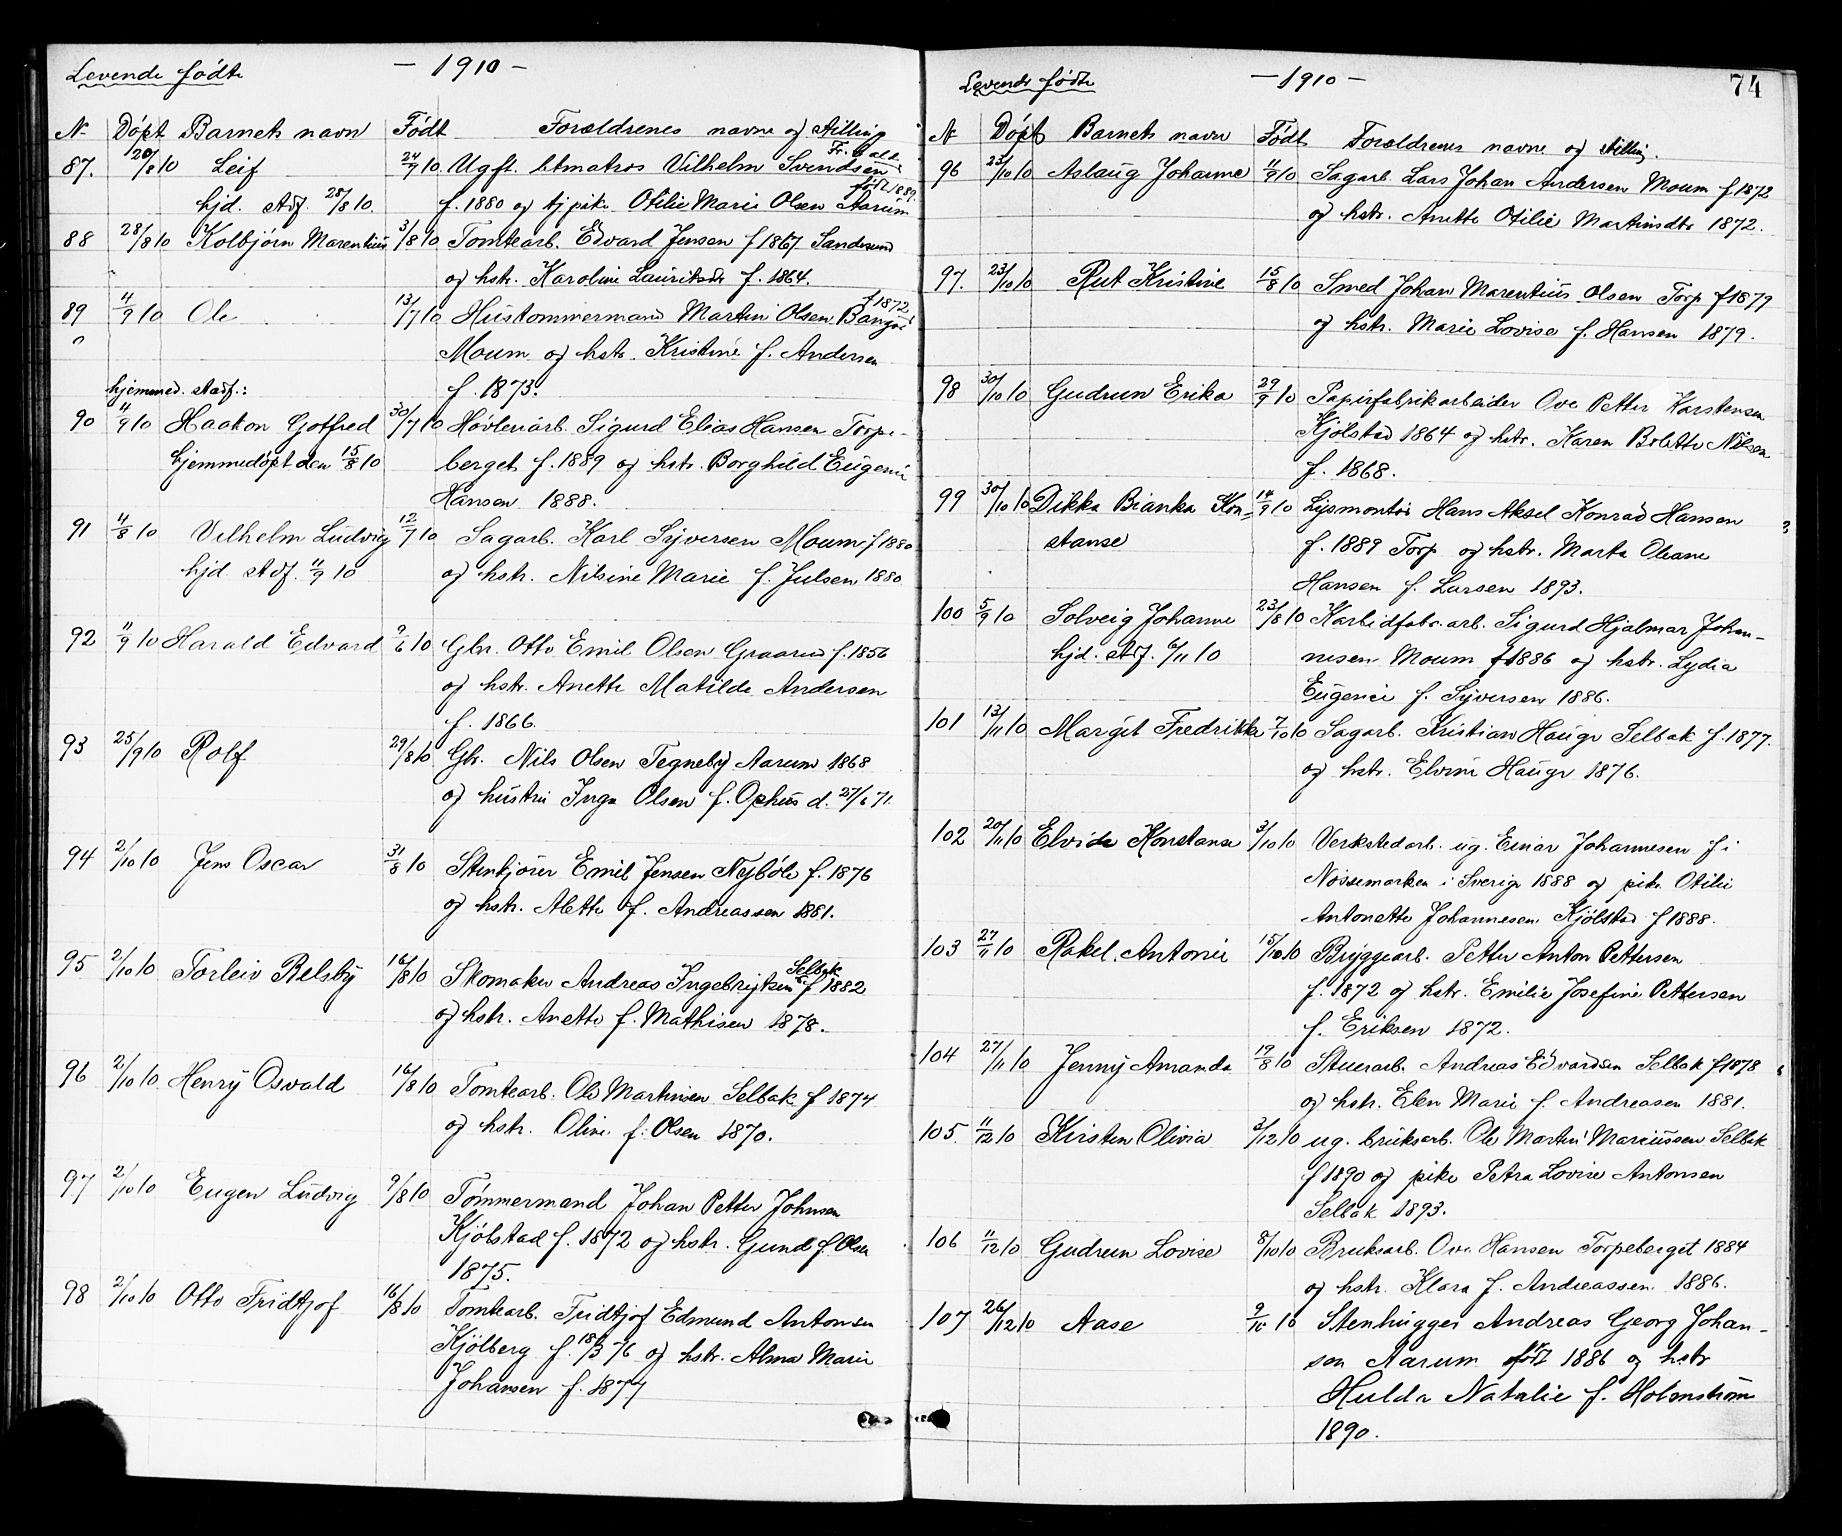 Levende födte - 1910 -
N. Döpt Barnets navn Födt Forældrenes navne og stilling
87. 20/8 10 Leif 24/7 10. Ugft. Vilhelm Svendsen
hjd. stdf. 28/8 10. f. 1880 og tj pike Otilie Marie Olsen Aarum født 1889.
88 28/8 10 Kolbjörn Marentius 3/8 10 Tomtearb. Edvard Jensen f 1867 Sandesund
og hstr. Karoline Lauritsdr f. 1864.
89 11/9 10 Ole 13/7 10 Hustømmermand Martin Olsen f 1872
Moum og hstr. Kristine f. Andersen
hjemmed. stadf.: f. 1873.
90 11/9 10 Haakon Gotfred 30/7 10 Høvleriarb. Sigurd Elias Hansen Torpe-
hjemmedöpt den 15/8 10 berget f. 1889 og hstr. Borghild Eugenie
Hansen 1888.
91 11/8 10 Vilhelm Ludvig 12/7 10 Sagarb. Karl Syversen Moum f 1880
hjd. stdf. 11/9 10 og hstr. Nilsine Marie f. Julsen 1880
92 11/9 10 Harald Edvard 9/6 10 Gbr. Otto Emil Olsen Graarud f. 1856
og hstr. Anette Matilde Andersen
f. 1866.
93 25/9 10 Rolf 29/8 10 Gbr. Nils Olsen Tegneby Aarum 1868
og hustru Inga Olsen f. Ophus d. 27/6 71.
94 2/10 10 Jens Oscar 31/8 10 Stenkjörer Emil Jensen Nyböle f. 1876
og hstr. Alette f. Andreassen 1881.
95 2/10 10 Torleiv Belsby 16/8 10 Skomaker Andreas Ingebrigtsen Selbak f 1882
og hstr. Anette f. Mathisen 1878.
96 2/10 10 Henry Osvald 16/8 10 Tomtearb. Ole Martinsen Selbak f 1874
og hstr. Oline f. Olsen 1870.
97 2/10 10 Eugen Ludvig 9/8 10 Tömmermand Johan Petter Johnsen
Kjölstad f. 1872 og hstr. Gund f. Olsen
1875.
98 2/10 10 Otto Fridtjof 16/8 10 Tomtearb. Fridtjof Edmund Antonsen
Kjölberg f. 18/3 76 og hstr. Alma Marie
Johansen f. 1877
Levende födte - 1910 - 74
N Döpt Barnets navn Födt Forældrenes navne og stilling.
96 23/10 10 Aslaug Johanne 11/9 10 Sagarb. Lars Johan Andersen Moum f 1872
og hstr. Anette Otilie Martinsdtr 1872.
97. 23/10 10 Rut Kristine 15/8 10 Smed Johan Marentius Olsen Torp f 1879
og hstr. Marie Lovise f. Hansen 1879.
98 30/10 10 Gudrun Erika 29/9 10 Papirfabrikarbeider Ove Petter Karstensen
Kjölstad 1864 og hstr. Karen Bolette Nilsen
f. 1868.
99 30/10 10 Dikka Bianka Kon= 14/9 10 Lysmontör Hans Aksel Konrad Hansen
stanse f. 1889 Torp og hstr. Marta Oleane
Hansen f. Larsen 1893.
100 5/9 10 Solveig Johanne 23/8 10 Karbidfabr. arb. Sigurd Hjalmar Johan-
hjd. stdf. 6/11 10 nesen Moum f 1886 og hstr. Lydia
Eugenie f. Syversen 1886.
101 13/11 10 Margit Fredrikke 7/10 10 Sagarb. Kristian Hauge Selbak f. 1877.
og hstr. Elvine Hauge 1876.
102 20/11 10 Elvida Konstanse 3/10 10 Verkstedarb. ug. Einar Johannesen f i
Nössemarken i Sverige 1888 og pike Otilie
Antonette Johannesen Kjölstad f 1888.
103 27/11 10 Rakel Antonie 15/10 10 Bryggearb. Petter Anton Pettersen
f. 1872 og hstr. Emilie Josefine Pettersen
f. Eriksen 1872.
104 27/11 10 Jenny Amanda 19/8 10 Stuerarb. Andreas Edvardsen Selbak f 1878
og hstr. Elen Marie f. Andreasen 1881.
105 11/12 10 Kirsten Olivia 3/12 10 ug. bruksarb. Ole Martin Mariussen Selbak
f 1890 og pike Petra Lovise Antonsen
Selbak 1893.
106 11/12 10 Gudrun Lovise 8/10 10 Bruksarb. Ove Hansen Torpeberget 1884
og hstr. Klara f. Andreassen 1886.
107 26/12 10 Aase 9/10 10 Stenhugger Andreas Georg Johan-
sen Aarum født 1886 og hstr
Hulda Natalie f. Holmström
1890.